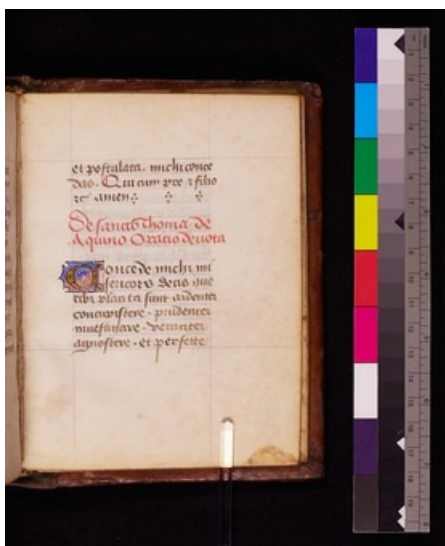 et postulata. michi conce
das. Qui cum pre ⁊ filio
⁊c amen
De sancto thoma de
Aquino Oracio devota
Concede michi mi
sericors deus que
tibi placita sunt ardenter
concupiscere. prudenter
investigare. veraciter
agnoscere. et perfecte